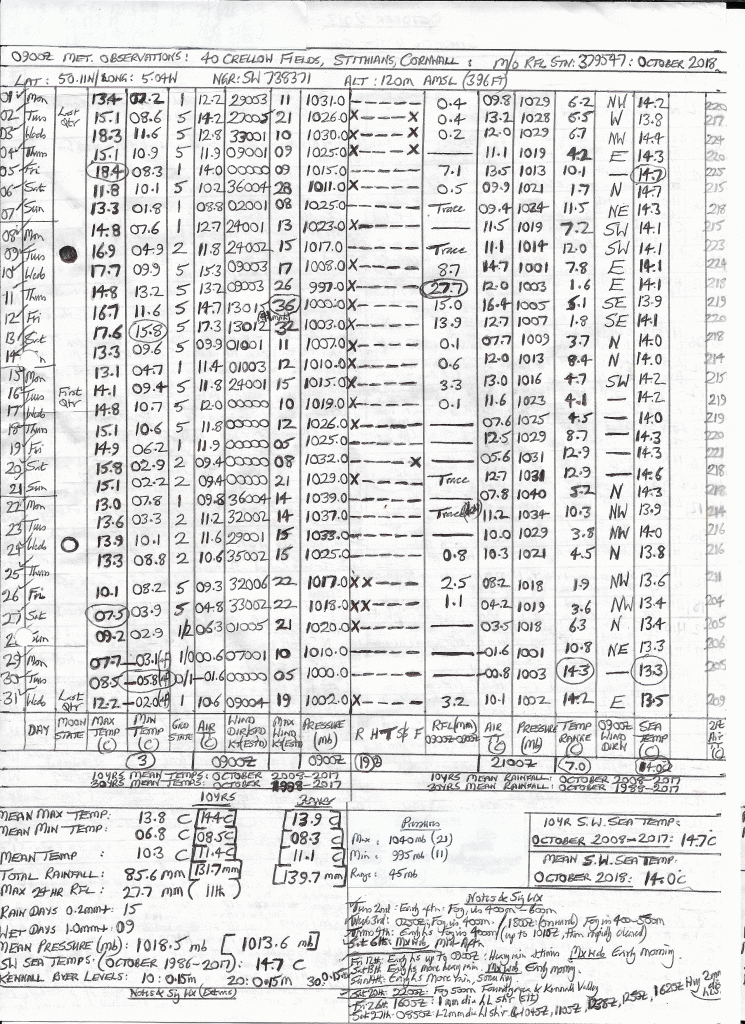 0900Z MET. OBSERVATIONS: 40 CRELLOW FIELDS, STITHIANS, CORNWALL : M/O RFL STN: 379547: OCTOBER 2018
LAT: 50.11N/LONG: 5.04W NGR: SW 738371 ALT: 120m AMSL (396FT)
01 Mon 13.4 07.2 1 12.2 29003 11 1031.0 ------ 0.4 09.8 1029 6.2 NW 14.2 220
02 Tus Last Qtr 15.1 08.6 5 14.2 27005 21 1026.0 X----X 0.4 13.2 1028 6.5 W 13.8 217
03 Wed 18.3 11.6 5 12.8 33001 10 1030.0 X----X 0.2 12.0 1029 6.7 NW 14.4
04 Thurs 15.1 10.9 5 11.9 09001 09 1025.0 X----X — 11.1 1019 4.2 E 14.3 220
05 Fri 18.4 08.3 1 14.0 00000 09 1015.0 ------ 7.1 13.5 1013 10.1 — 14.7 225
06 Sat 11.8 10.1 5 10.2 36004 28 1011.0 X----- 0.5 09.9 1021 1.7 N 14.7 215
07 Sun 13.3 01.8 1 08.8 02001 08 1025.0 ------ Trace 09.4 1024 11.5 NE 14.3 218
08 Mon 14.8 07.6 1 12.7 24001 13 1023.0 X----- — 11.5 1019 7.2 SW 14.1 215
09 Tus 16.9 04.9 2 11.8 24002 15 1017.0 ------ Trace 11.1 1014 12.0 SW 14.1 223
10 Wed 17.7 09.9 5 15.3 09003 17 1008.0 X----- 8.7 14.7 1001 7.8 E 14.1 224
11 Thurs 14.8 13.2 5 13.2 09003 26 997.0 X----- 27.7 12.0 1003 1.6 E 14.1 218
12 Fri 16.7 11.6 5 14.7 13015 36 1000.0 X----- 15.0 16.4 1005 5.1 SE 13.9 219
13 Sat 17.6 15.8 5 17.3 13012 32 1003.0 X----- 13.9 12.7 1007 1.8 SE 14.1 220
14 13.3 09.6 5 09.9 01001 11 1007.0 X----- 0.1 07.7 1009 3.7 N 14.0 218
15 Mon 13.1 04.7 1 11.4 01003 12 1010.0 X----- 0.6 12.0 1013 8.4 N 14.0 214
16 Tus First Qtr 14.1 09.4 5 11.8 24001 15 1015.0 X----- 3.3 13.0 1016 4.7 SW 14.2 215
17 Wed 14.8 10.7 5 12.0 00000 10 1019.0 X----- 0.1 11.6 1023 4.1 — 14.2 219
18 Thurs 15.1 10.6 5 11.8 00000 12 1026.0 X----- — 07.6 1025 4.5 — 14.0 219
19 Fri 14.9 06.2 1 11.9 00000 05 1025.0 ------ — 12.5 1029 8.7 — 14.3 220
20 Sat 15.8 02.9 2 09.4 00000 08 1032.0 -----X — 05.6 1031 12.9 — 14.3 221
21 Sun 15.1 02.2 2 09.4 00000 21 1029.0 X----- Trace 12.7 1031 12.9 — 14.6 218
22 Mon 13.0 07.8 1 09.8 36004 14 1039.0 ------ — 07.8 1040 5.2 N 14.3 218
23 Tus 13.6 03.3 2 11.2 32002 14 1037.0 ------ Trace 11.2 1034 10.3 NW 13.9 214
24 Wed 13.9 10.1 2 11.6 29001 15 1033.0 ------ — 10.0 1029 3.8 NW 14.0 216
25 Thurs 13.3 08.8 2 10.6 35002 15 1025.0 ------ 0.8 10.3 1021 4.5 N 13.8 216
26 Fri 10.1 08.2 5 09.3 32006 22 1017.0 XX---- 2.5 08.2 1018 1.9 NW 13.6 211
27 Sat 07.5 03.9 5 04.8 33002 22 1018.0 XX---- 1.1 04.2 1019 3.6 NW 13.4 204
Sun 09.2 02.9 1/2 06.3 01005 21 1020.0 X----- — 03.5 1018 6.3 N 13.4 205
29 Mon 07.7 -03.1 1/0 00.6 07001 10 1010.0 ------ — 01.6 1001 10.8 NE 13.3 206
30 Tus 08.5 -05.8 0/1 -01.6 00000 05 1000.0 ------ — 00.8 1003 14.3 — 13.3 205
31 Wed Last Qtr 12.2 -02.0 1 10.6 09004 19 1002.0 X----- 3.2 10.1 1002 14.2 E 13.5 209
DAY MOON STATE MAX TEMP (C) MIN TEMP (C) GRD STATE AIR T (C) WIND DIR/SPD Kt(ESTD) MAX WIND Kt(ESTD) PRESSURE (mb) R H T S F RFL(mm) 0900Z-0900Z AIR T (C) PRESSURE (mb) TEMP RANGE (C) 0900Z WIND DIRN SEA TEMP (C)
3 0900Z 0900Z 19 2100Z 7.0 14.0
10YRS MEAN TEMPS: OCTOBER 2008-2017 10YRS MEAN RAINFALL: OCTOBER 2008-2017
30YRS MEAN TEMPS: OCTOBER 1988-2017 30YRS MEAN RAINFALL: OCTOBER 1988-2017
10YRS 30YRS
MEAN MAX TEMP: 13.8 C [14.4 C] [13.9 C]
MEAN MIN TEMP: 06.8 C [08.5 C] [08.3 C]
MEAN TEMP : 10.3 C [11.4 C] [11.1 C]
TOTAL RAINFALL: 85.6 mm [131.7mm] [139.7 mm]
MAX 24HR RFL: 27.7 mm (11th)
RAIN DAYS 0.2mm+: 15
WET DAYS 1.0mm+: 09
MEAN PRESSURE (mb): 1018.5 mb [1013.6 mb]
SW SEA TEMPS: (OCTOBER 1986-2017): 14.7 C
KENNALL RIVER LEVELS: 10: 0.15m 20: 0.15m 30: 0.15m
Notes & Sig Wx (Extems)
Pressures
Max: 1040 mb (21)
Min: 995 mb (11)
Range: 45 mb
10YR S.W. SEA TEMP:
OCTOBER 2008-2017: 14.7C
MEAN S.W. SEA TEMP:
OCTOBER 2018: 14.0C
Notes & Sig Wx
Tues 2nd: Early Aftn: Fog, vis 400m - 600m
Weds 3rd: 0250Z, Fog vis 400m / 1800Z (onwards) Fog vis 400-500m
Sat 6th: Mod
Fri 12th: Early Morning.
Sat 13th: Early more heavy rain. Early morning.
Sun 14th: Early More Rain,
Sat 20th: 2200Z Fog 500m & Kennall Valley
Fri 26th: 1605Z: 1mm dia
Sat 27th: 0855Z: 2mm dia & 1045Z, 1105Z, 1238Z, 1255Z, 1625Z